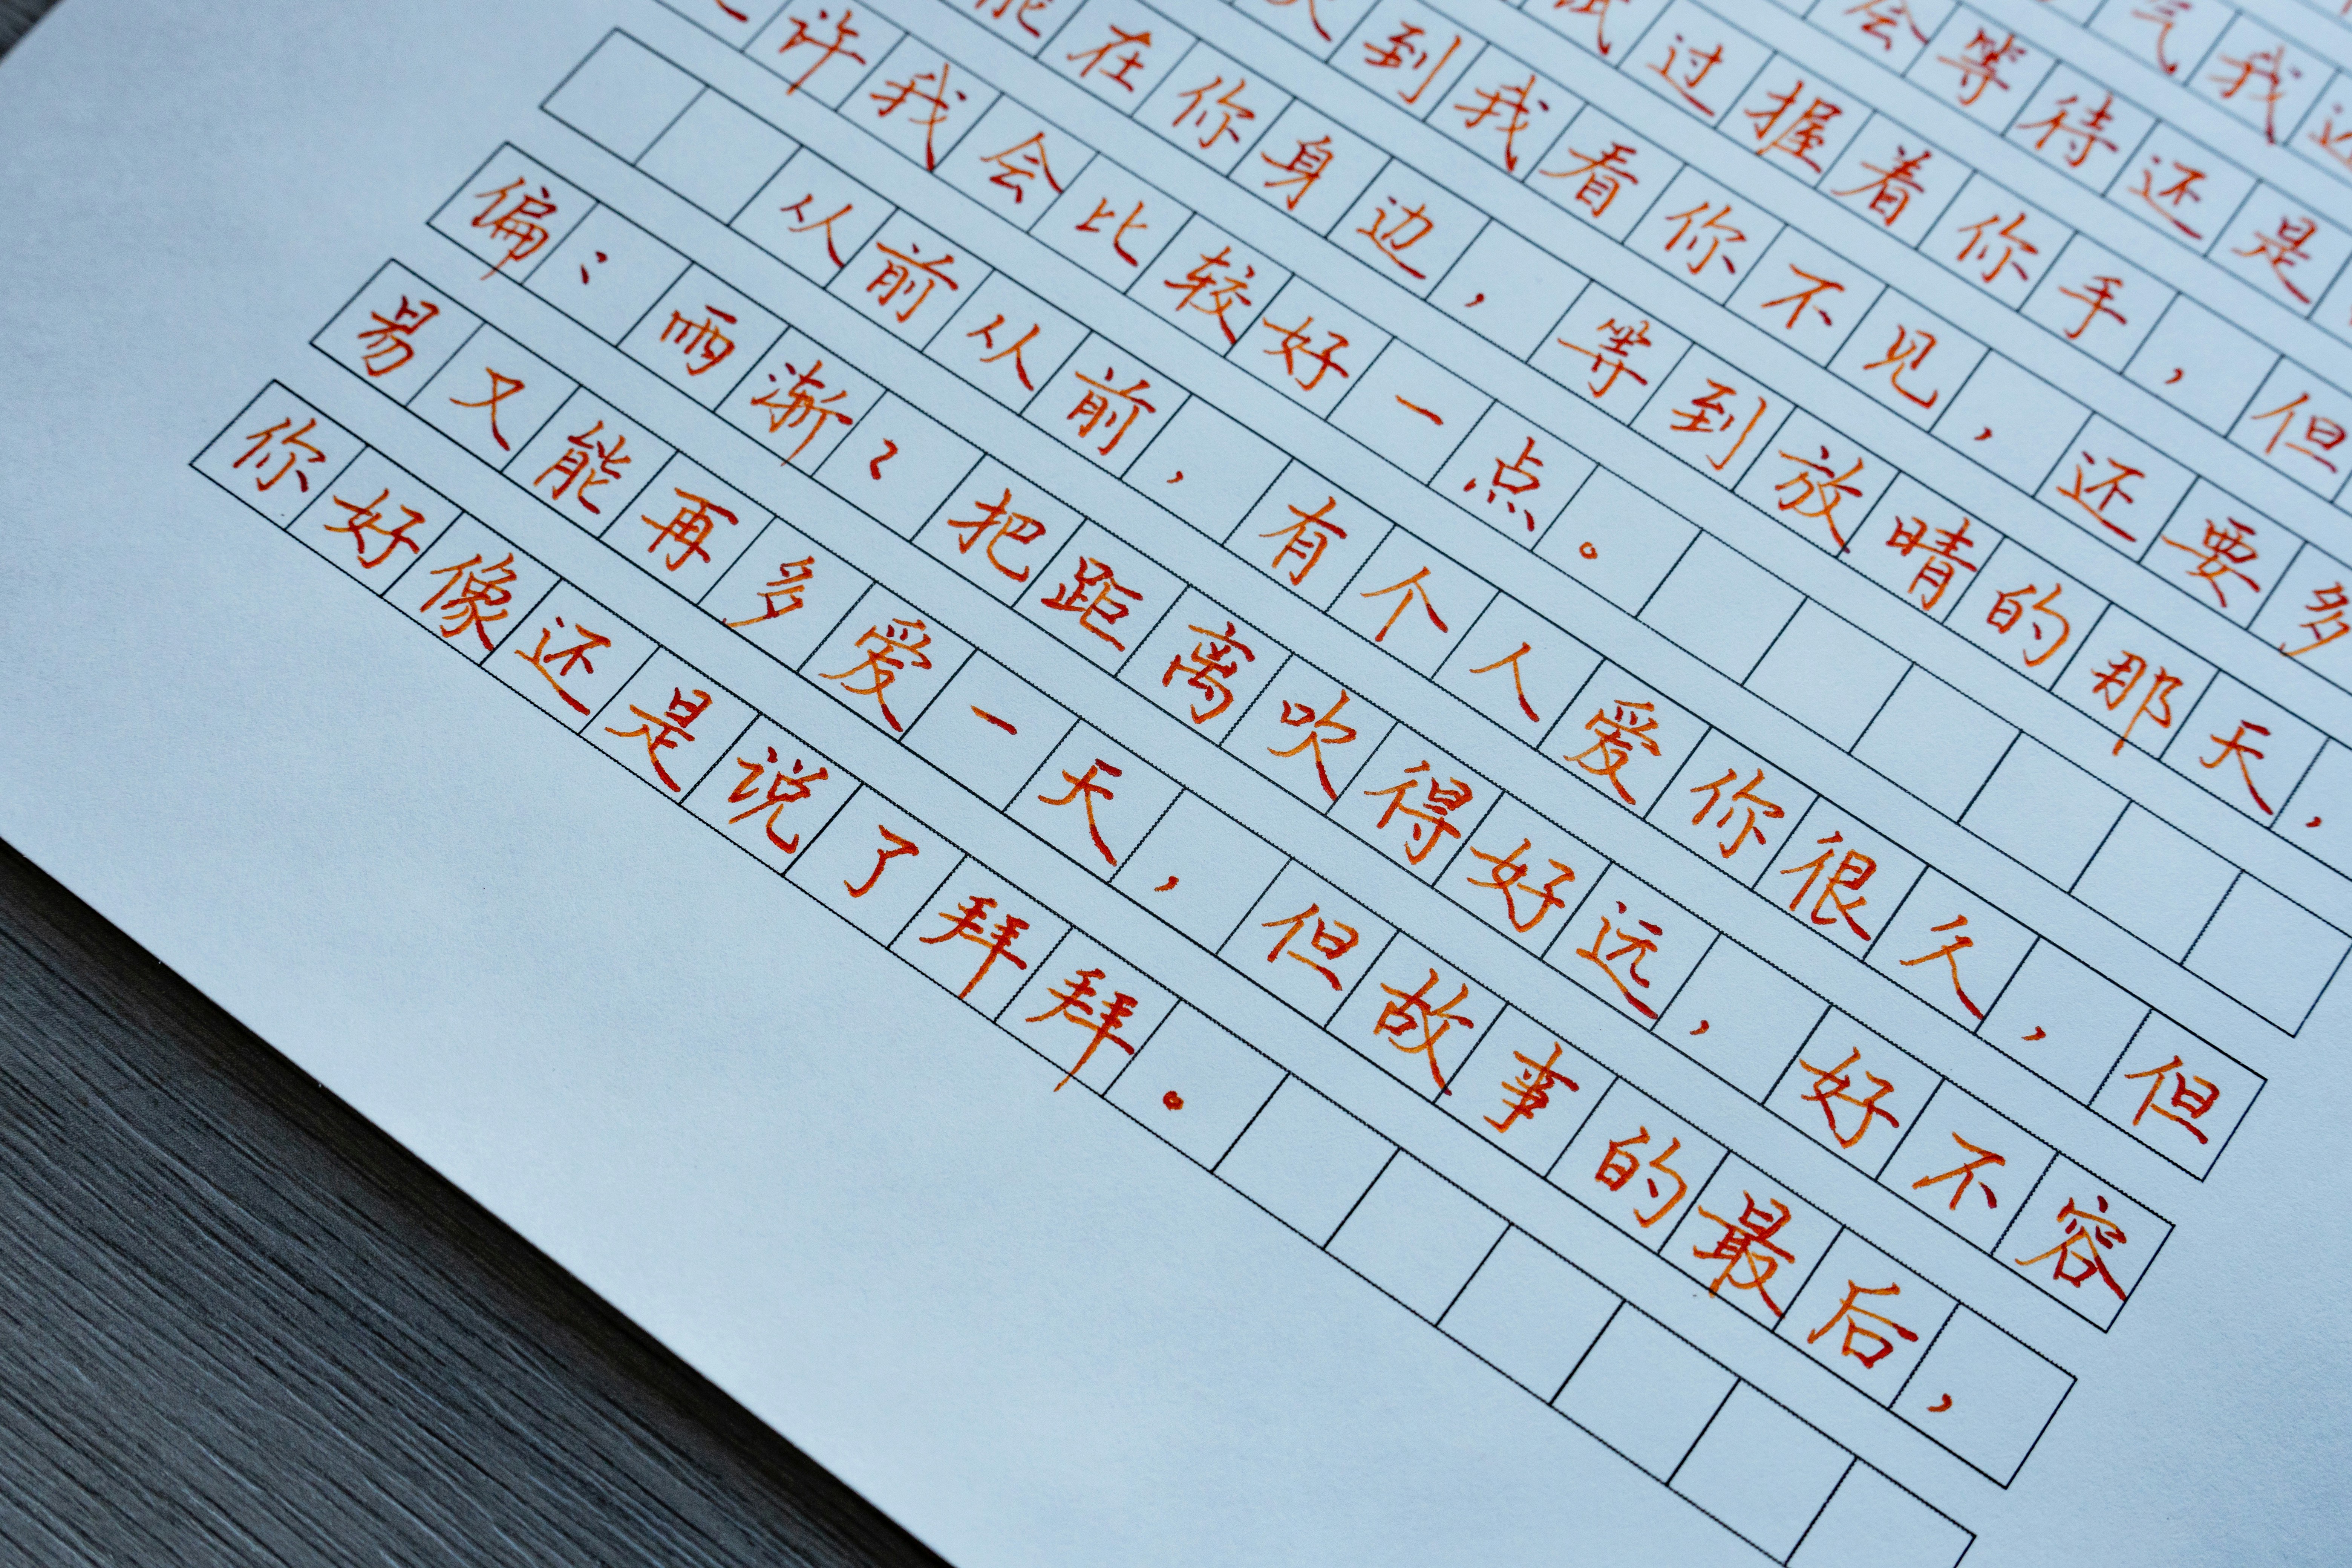 气我
会等待还是
试过握着你手，但
到我看你不见，还要多
能在你身边，等到放晴的那天，
许我会比较好一点。
从前从前，有个人爱你很久，但
偏〻雨渐〻把距离吹得好远，好不容
易又能再多爱一天，但故事的最后，
你好像还是说了拜拜。